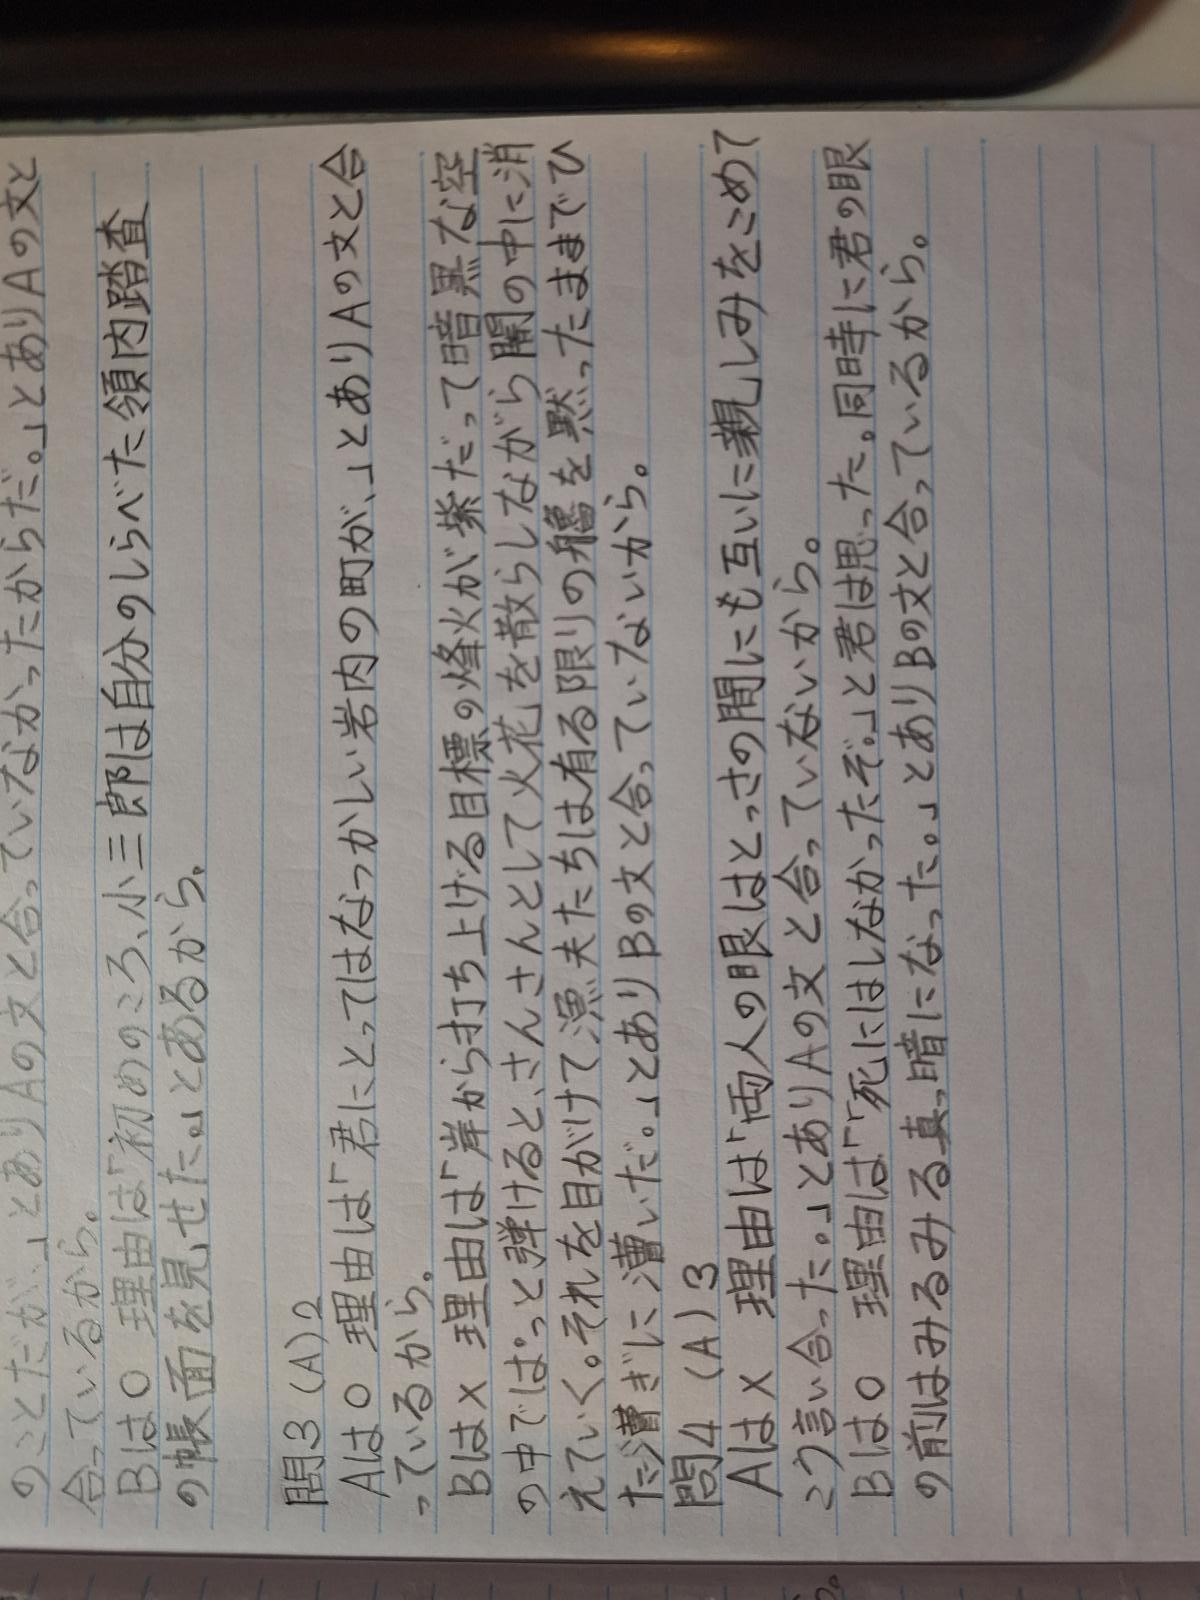 のことだが、」とありAの文と合っていなかったからだ。」とありAの文と
合っているから。
Bは○ 理由は「初めのころ、小三郎は自分のしらべた領内踏査
の帳面を見せた。」とあるから。
問3 (A) 2
Aは○ 理由は「君にとってはなつかしい岩内の町が、」とありAの文と合
っているから。
Bは× 理由は「岸から打ち上げる目標の烽火が紫だって暗黒な空
の中でぱっと弾けると、さんさんとして火花を散らしながら闇の中に消
えていく。それを目がけて漁夫たちは有る限りの艪を黙ったままでひ
た漕ぎに漕いだ。」とありBの文と合っていないから。
問4 (A) 3
Aは× 理由は「両人の眼はとっさの間にも互いに親しみをこめて
こう言い合った。」とありAの文と合っていないから。
Bは○ 理由は「「死にはしなかったぞ。」と君は思った。同時に君の眼
の前はみるみる真っ暗になった。」とありBの文と合っているから。